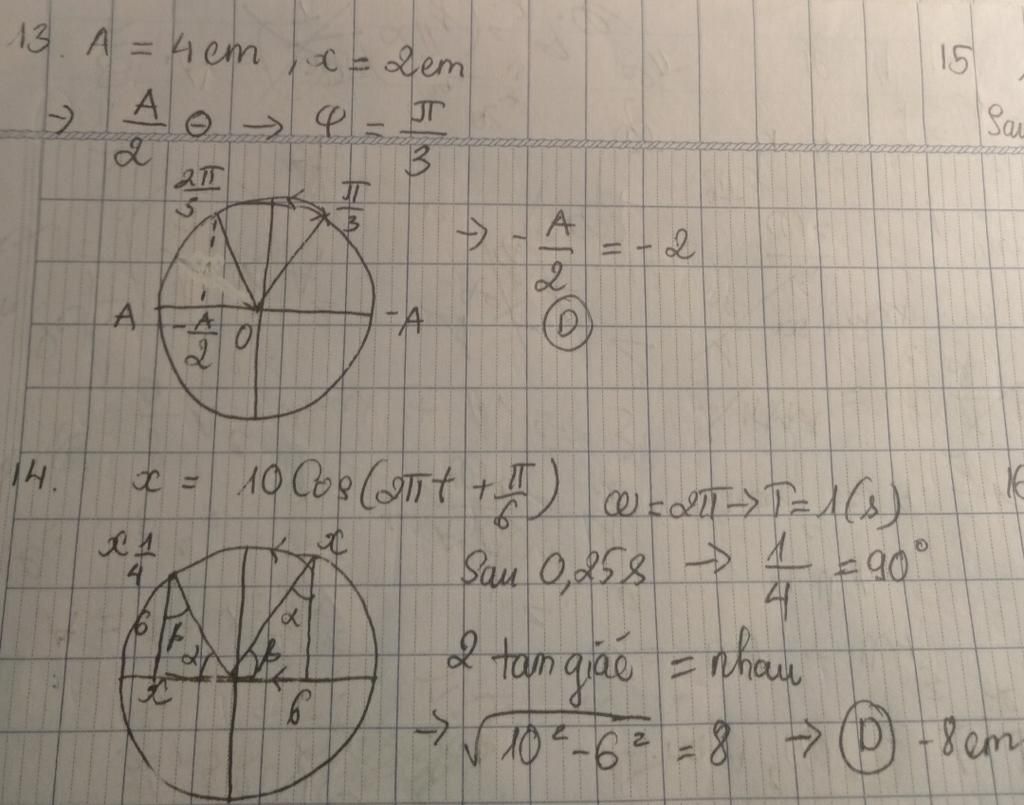 13. A = 4cm, x = 2cm
15
→ A/2 ⊖ → φ = π/3
Sau
2π/5
π/3
→ -A/2 = -2
A
-A/2
O
-A
D
14. x = 10 Cos(2πt + π/6) ω = 2π → T = 1(s)
16
x 1/4
x
Sau 0,25s → 1/4 = 90°
6
β
α
α
β
2 tam giác = nhau
x
6
→ √10² - 6² = 8 → D -8cm